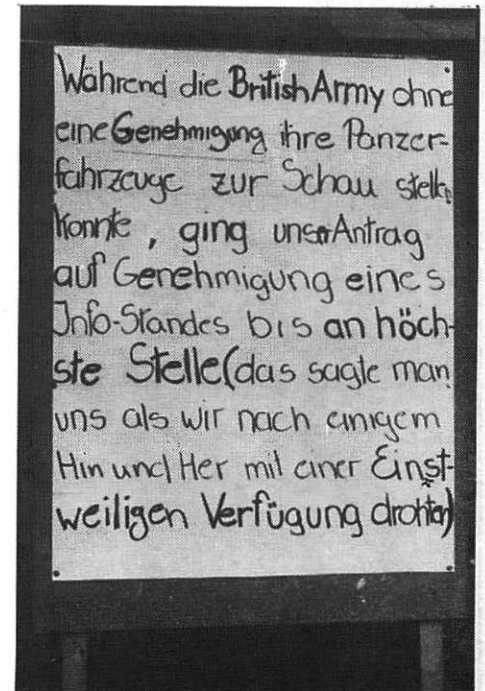 Während die British Army ohne
eine Genehmigung ihre Panzer-
fahrzeuge zur Schau stellen
konnte, ging unser Antrag
auf Genehmigung eines
Info-Standes bis an höch-
ste Stelle (das sagte man
uns als wir nach einigem
Hin und Her mit einer Einst-
weiligen Verfügung drohten)